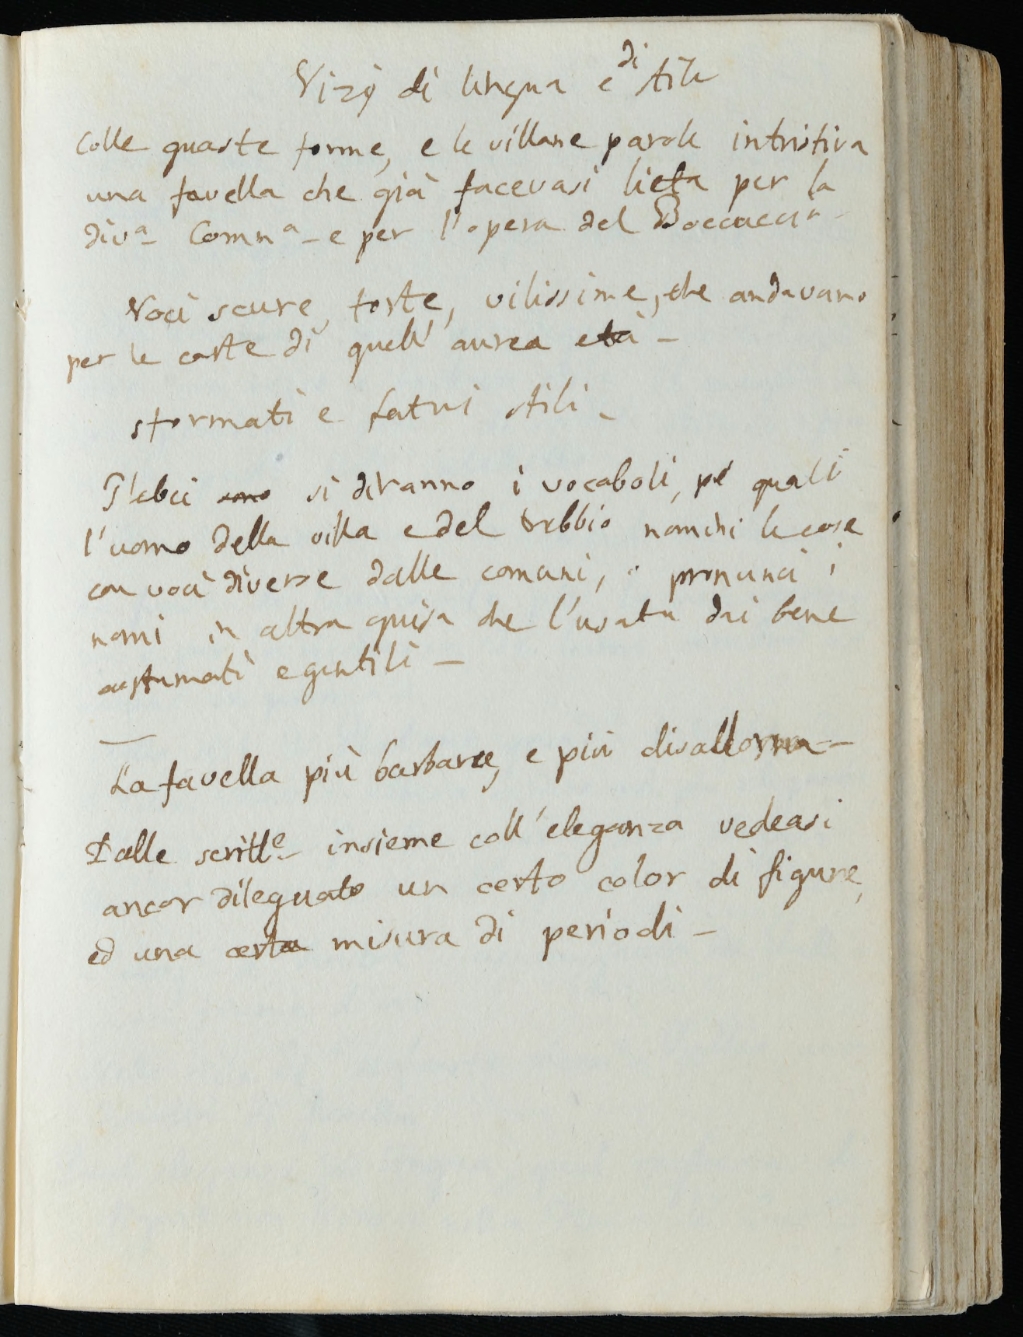 Vizj di lingua e di stile
Colle guaste forme, e le villane parole intristiva
una favella che già facevasi lieta per la
divᵃ Commᵃ - e per l'opera del Boccaccio -
Voci scure, torte, vilissime, che andavano
per le carte di quell' aurea età -
sformati e fatui stili -
Plebei sono si diranno i vocaboli, pe' quali
l'uomo della villa e del trebbio nomini le cose
con voci diverse dalle comuni, o pronunci i
nomi in altra guisa che l'usata dai bene
costumati e gentili -
La favella più barbara, e più disadorna -
Dalle scrittᵉ - insieme coll'eleganza vedeasi
ancor dileguato un certo color di figure,
ed una certa misura di periodi -